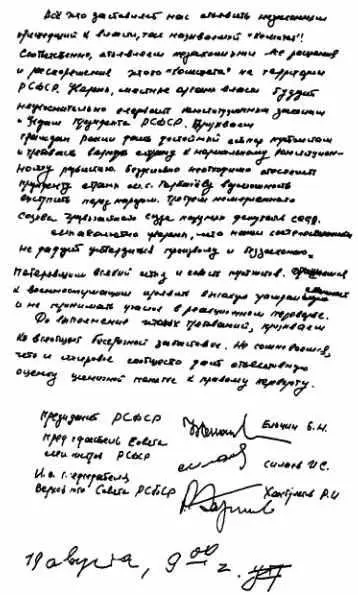 Всё это заставляет нас объявить незаконным
пришедший к власти, так называемый "комитет"!
Соответственно, объявляем незаконными все решения
и распоряжения этого "комитета" на территории
РСФСР. Уверены, местные органы власти будут
неукоснительно следовать Конституционным законам
и Указам Президента РСФСР. Призываем
граждан России дать достойный ответ путчистам
и требовать вернуть страну к нормальному конституцион-
ному развитию. Безусловно необходимо обеспечить
президенту страны М.С. Горбачёву возможность
выступить перед народом. Требуем немедленного
созыва Чрезвычайного Съезда народных депутатов СССР.
Абсолютно уверены, что наши соотечественники
не дадут утвердиться произволу и беззаконию
потерявших всякий стыд и совесть путчистов. Обращаемся
к военнослужащим проявить высокую гражданственность
и не принимать участия в реакционном перевороте.
До выполнения этих требований, призываем
ко всеобщей бессрочной забастовке. Не сомневаемся,
что и мировое сообщество даст объективную
оценку циничной попытке к правому перевороту.
Президент РСФСР Ельцин Б.Н.
Председатель Совета
министров РСФСР Силаев И.С.
И.о. председателя
Верховного Совета РСФСР Хасбулатов Р.И
19 августа, 9 00